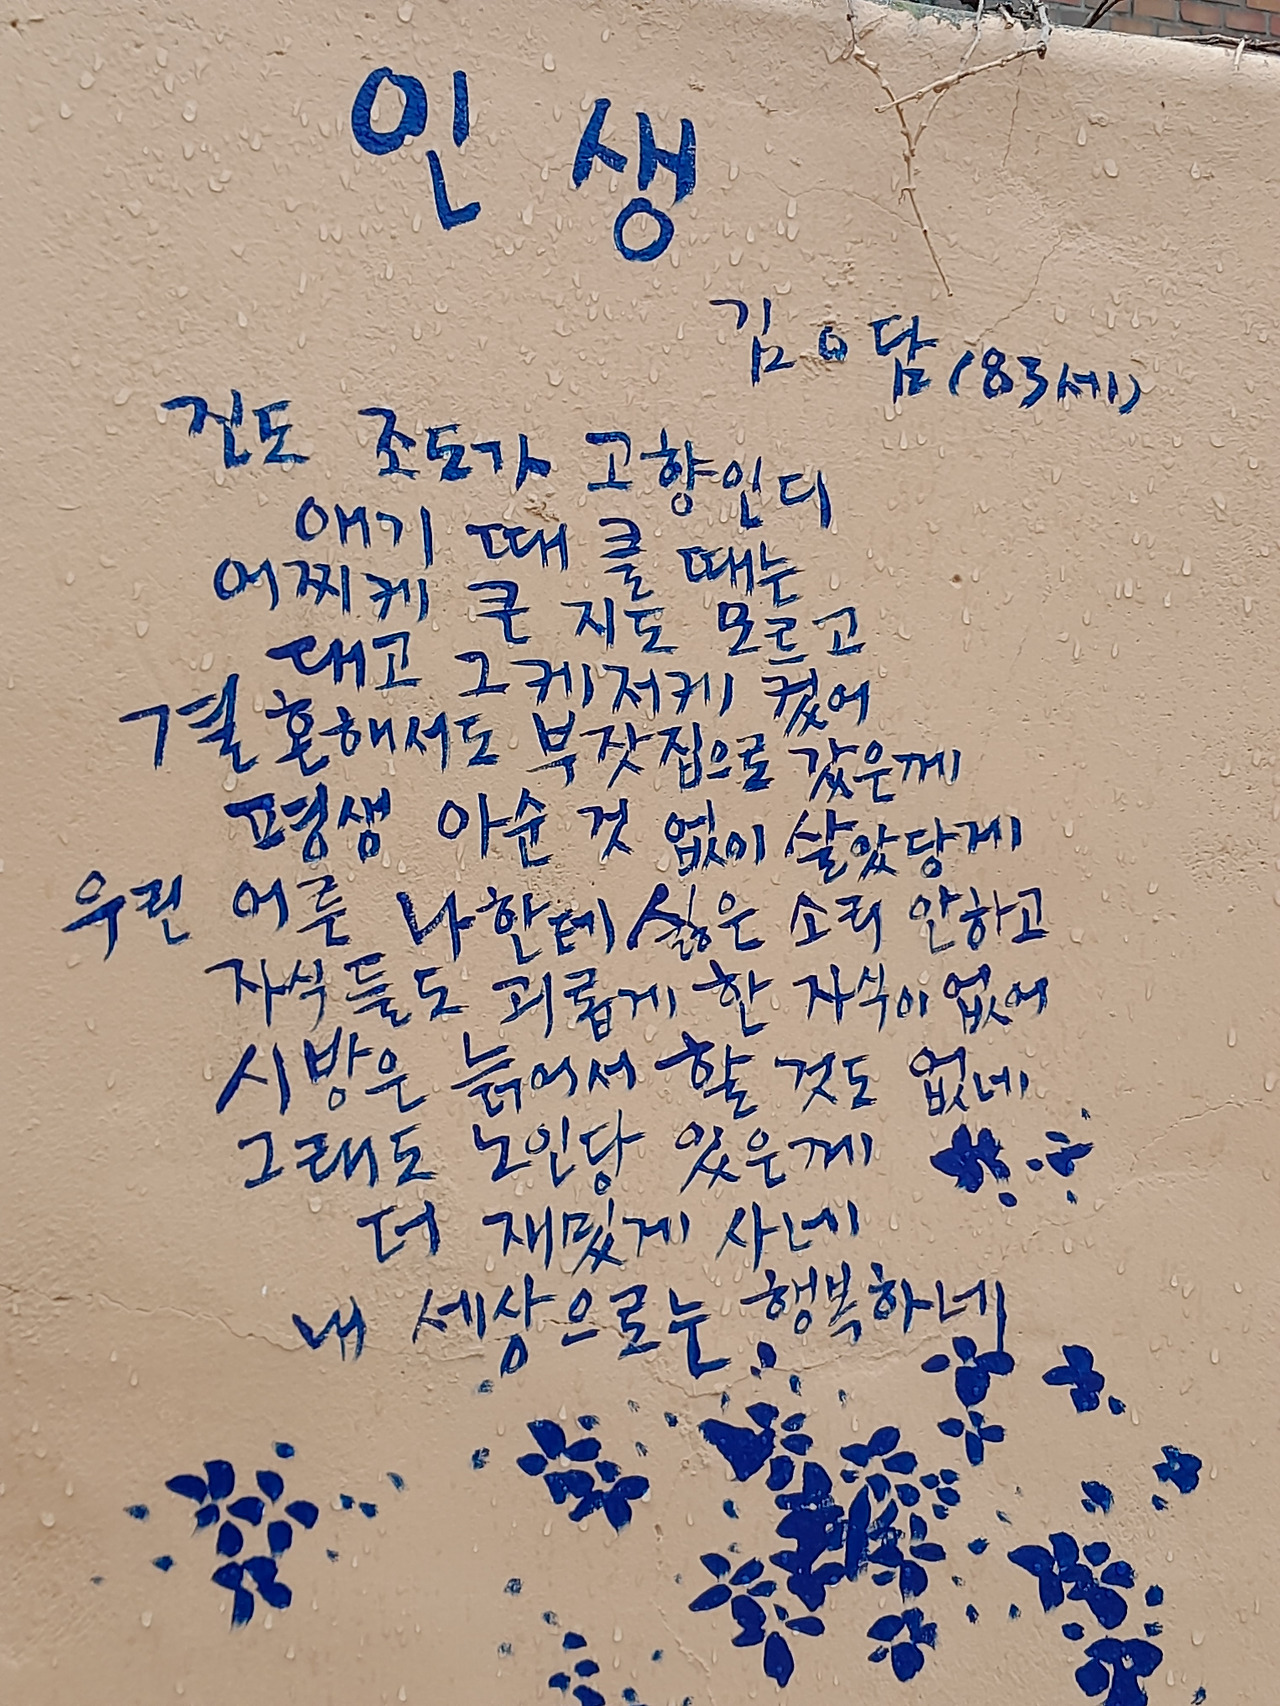 인생
김ㅇ담(83세)
진도 조도가 고향인디
애기 때 클 때는
어찌케 큰 지도 모르고
대고 그케저케 컸어
결혼해서도 부잣집으로 갔은께
평생 아순 것 없이 살았당게
우린 어른 나한테 싫은 소리 안하고
자식들도 괴롭게 한 자식이 없어
시방은 늙어서 할 것도 없네
그래도 노인당 있은께
더 재밌게 사네
내 세상으로는 행복하네